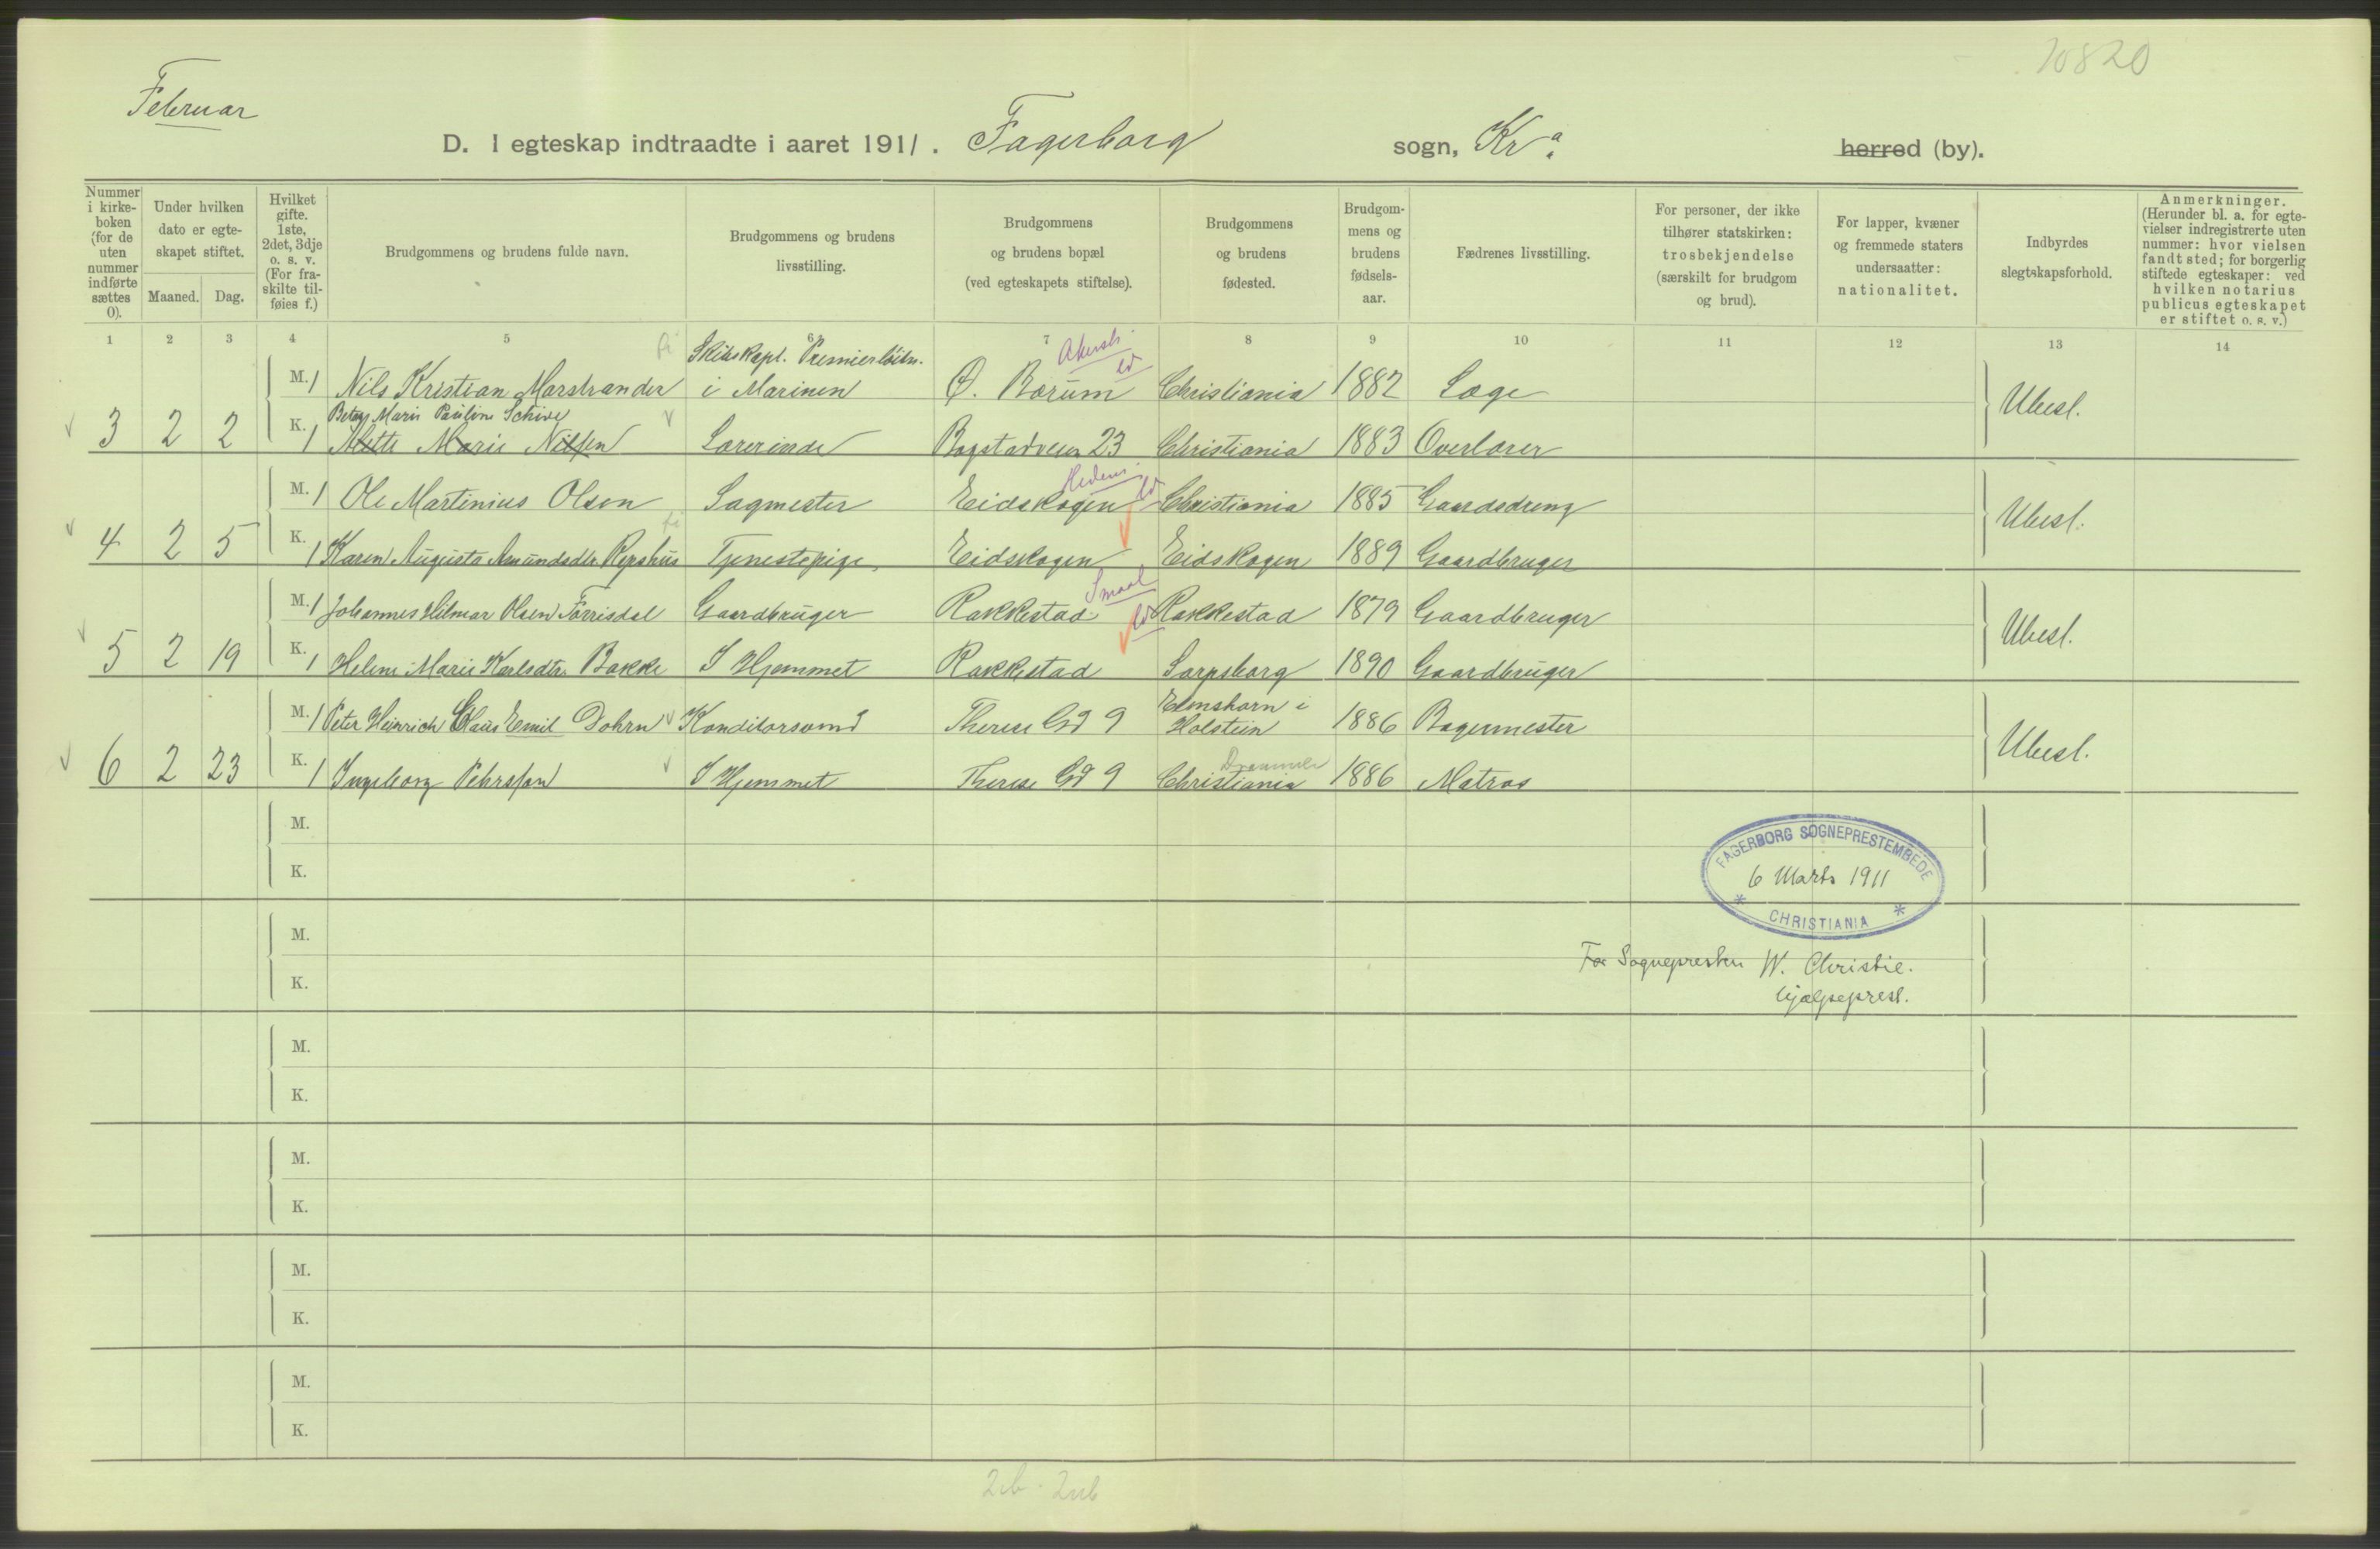 10820
Februar
D. I egteskap indtraadte i aaret 1911. Fagerborg sogn, Kr.a herred (by).
Nummer i kirkeboken (for de uten nummer indførte sættes 0).
Under hvilken dato er egteskapet stiftet.
Maaned. Dag.
Hvilket gifte. 1ste, 2det, 3dje o. s. v. (For fraskilte tilføies f.)
Brudgommens og brudens fulde navn.
Brudgommens og brudens livsstilling.
Brudgommens og brudens bopæl (ved egteskapets stiftelse).
Brudgommens og brudens fødested.
Brudgommens og brudens fødselsaar.
Fædrenes livsstilling.
For personer, der ikke tilhører statskirken: trosbekjendelse (særskilt for brudgom og brud).
For lapper, kvæner og fremmede staters undersaatter: nationalitet.
Indbyrdes slegtskapsforhold.
Anmerkninger. (Herunder bl. a. for egtevielser indregistrerte uten nummer: hvor vielsen fandt sted; for borgerlig stiftede egteskaper: ved hvilken notarius publicus egteskapet er stiftet o. s. v.)
1 2 3 4 5 6 7 8 9 10 11 12 13 14
Skibskapt. Premierløitn. Akersh
M. 1 Nils Kristian Marstrander i Marinen Ø. Bærum Christiania 1882 Læge
Betzy Marie Pauline Schive
3 2 2 K. 1 Mette Marie Nilsen Lærerinde Bogstadveien 23 Christiania 1883 Overlærer Ubesl.
Hedem.
M. 1 Ole Martinius Olsen Sagmester Eidskogen Christiania 1885 Gaardsdreng
4 2 5 K. 1 Karen Augusta Amundsdtr. Repshus Tjenestepige Eidskogen Eidskogen 1889 Gaardbruger Ubesl.
Smaal
M. 1 Johannes Hilmar Olsen Førrisdal Gaardbruger Rakkestad Rakkestad 1879 Gaardbruger
5 2 19 K. 1 Helene Marie Karlsdtr. Bakke I Hjemmet Rakkestad Sarpsborg 1890 Gaardbruger Ubesl.
Elmshorn i
M. 1 Peter Heinrich Claus Emil Dohrn Konditorsvend Therese Gd 9 Holstein 1886 Bagermester
Drammen
6 2 23 K. 1 Ingeborg Pehrsson I Hjemmet Therese Gd 9 Christiania 1886 Matros Ubesl.
M.
K.
FAGERBORG SOGNEPRESTEMBEDE
6 Marts 1911
* CHRISTIANIA *
M.
For Sognepresten W. Christie.
K.
hjælpeprest.
M.
K.
M.
K.
M.
K.
M.
K.